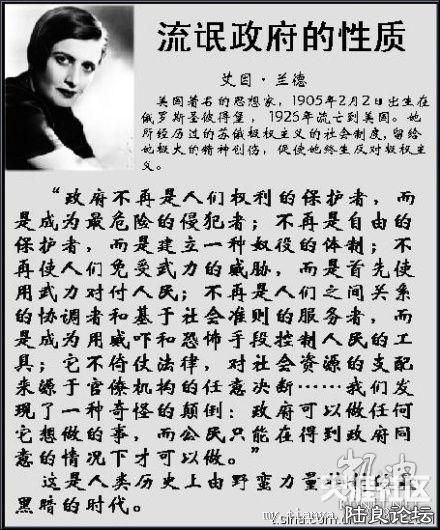 流氓政府的性质
艾因·兰德
美国著名的思想家，1905年2月2日出生在
俄罗斯圣彼得堡，1925年流亡到美国。她
所经历过的苏俄极权主义的社会制度，留给
她极大的精神创伤，促使她终生反对极权主
义。
“政府不再是人们权利的保护者，而
是成为最危险的侵犯者；不再是自由的
保护者，而是建立一种奴役的体制；不
再使人们免受武力的威胁，而是首先使
用武力对付人民；不再是人们之间关系
的协调者和基于社会准则的服务者，而
是成为用威吓和恐怖手段控制人民的工
具；它不倚仗法律，对社会资源的支配
来源于官僚机构的任意决断……我们发
现了一种奇怪的颠倒：政府可以做任何
它想做的事，而公民只能在得到政府同
意的情况下才可以做。”
这是人类历史上由野蛮力量
黑暗的时代。
天涯社区
陆良论坛